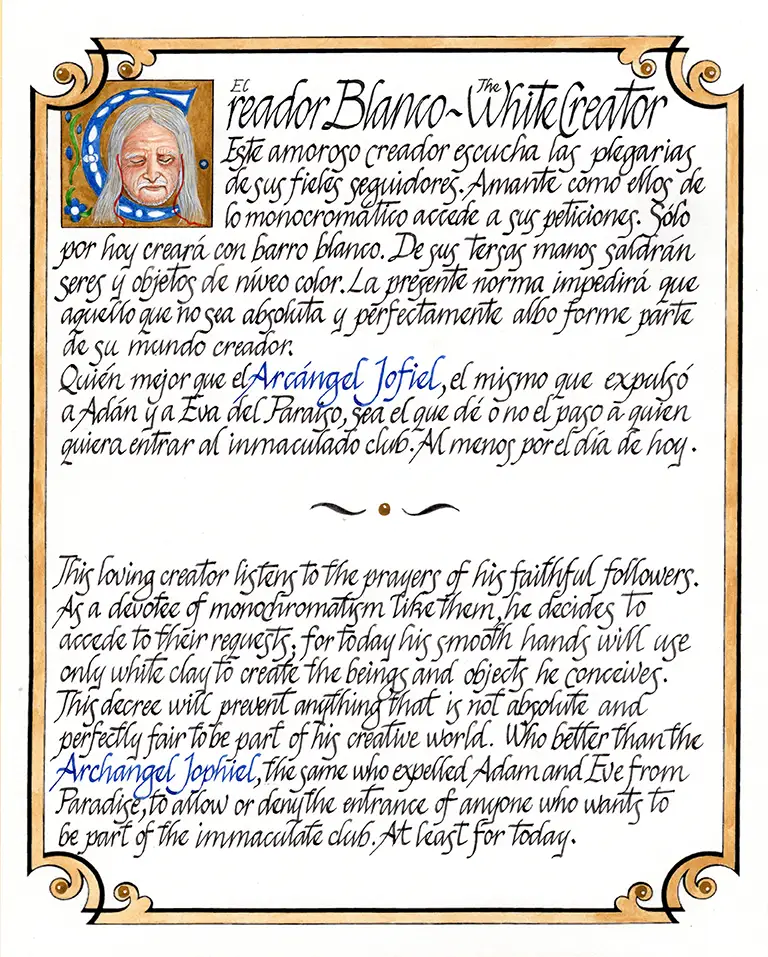 El Creador Blanco ~ The White Creator
Este amoroso creador escucha las plegarias
de sus fieles seguidores. Amante como ellos de
lo monocromático accede a sus peticiones. Sólo
por hoy creará con barro blanco. De sus tersas manos saldrán
seres y objetos de níveo color. La presente norma impedirá que
aquello que no sea absoluta y perfectamente albo forme parte
de su mundo creador.
Quién mejor que el Arcángel Jofiel, el mismo que expulsó
a Adán y a Eva del Paraíso, sea el que dé o no el paso a quien
quiera entrar al inmaculado club. Al menos por el día de hoy.
This loving creator listens to the prayers of his faithful followers.
As a devotee of monochromatism like them, he decides to
accede to their requests; for today his smooth hands will use
only white clay to create the beings and objects he conceives.
This decree will prevent anything that is not absolute and
perfectly fair to be part of his creative world. Who better than the
Archangel Jophiel, the same who expelled Adam and Eve from
Paradise, to allow or deny the entrance of anyone who wants to
be part of the immaculate club. At least for today.